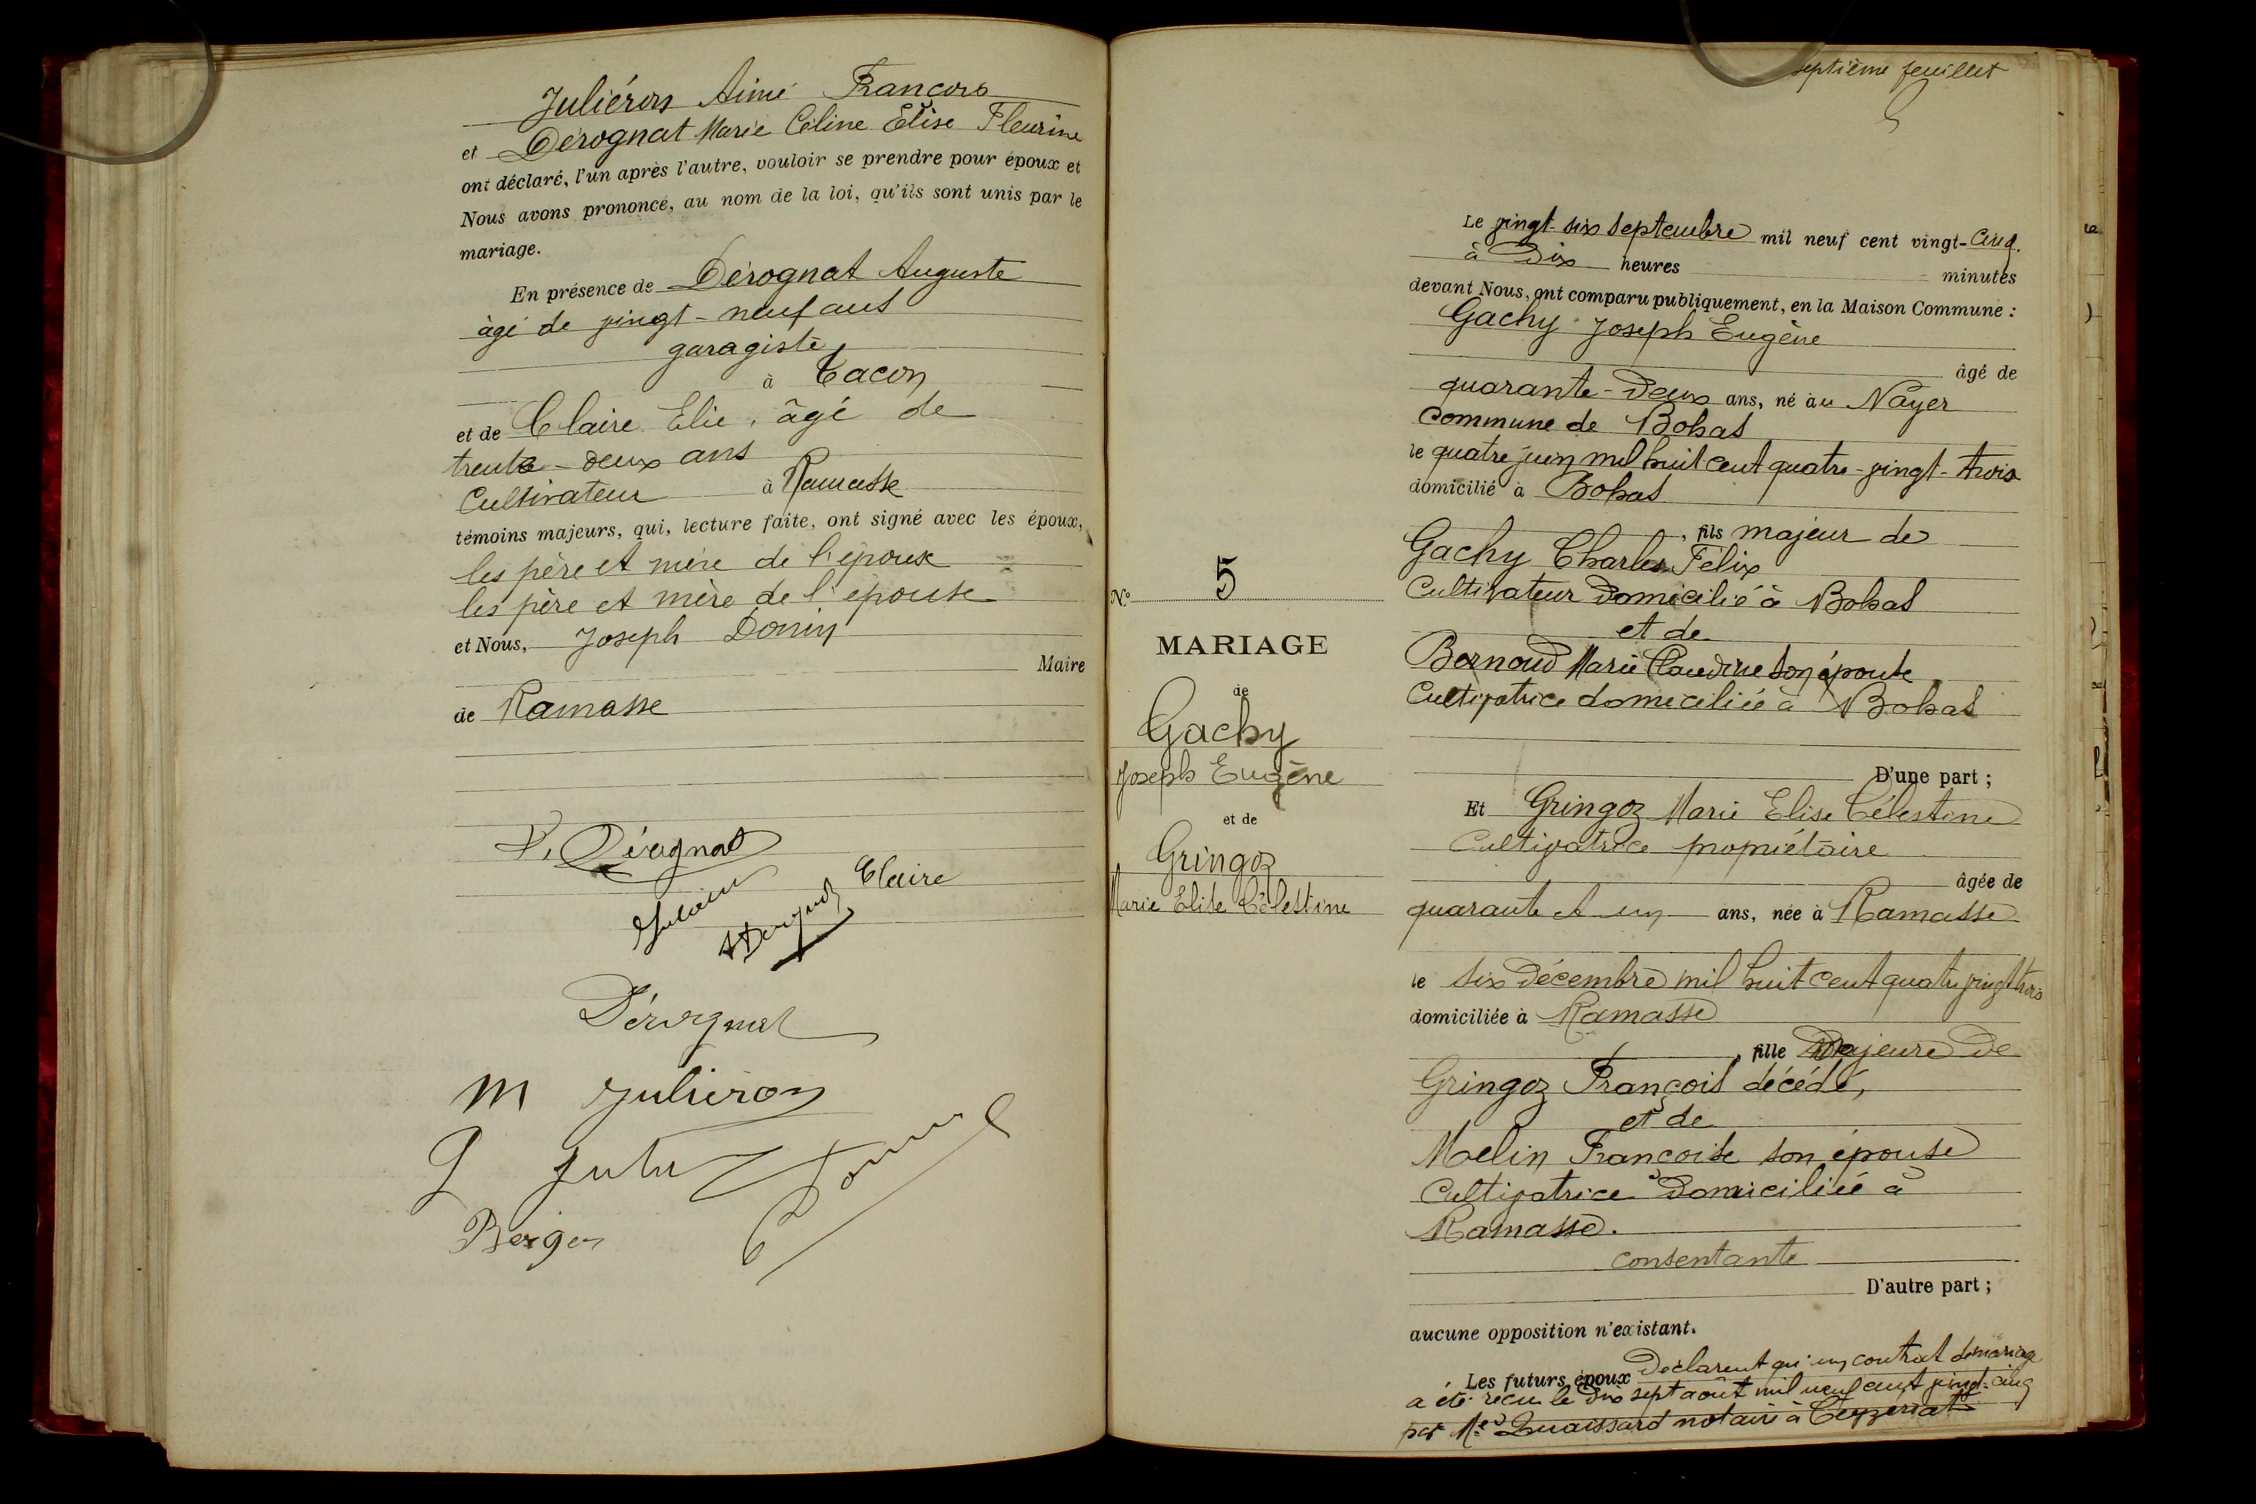 Juliéron Aimé François
et Dérognat Marie Céline Elise Fleurine
ont déclaré, l'un après l'autre, vouloir se prendre pour époux et
Nous avons prononcé, au nom de la loi, qu'ils sont unis par le
mariage.
En présence de Dérognat Auguste
âgé de vingt-neuf ans
garagiste
à Tacon
et de Claire Elie, âgé de
trente-deux ans
Cultivateur à Ramasse
témoins majeurs, qui, lecture faite, ont signé avec les époux,
les père et mère de l'époux
les père et mère de l'épouse
et Nous, Joseph Donin
Maire
de Ramasse
Claire
Dérognat
M Juliéron
septième feuillet
N° 5
MARIAGE
de
Gachy
Joseph Eugène
et de
Gringoz
Marie Elise Célestine
Le vingt-six septembre mil neuf cent vingt-cinq.
à Dix heures minutes
devant Nous, ont comparu publiquement, en la Maison Commune :
Gachy Joseph Eugène
âgé de
quarante-deux ans, né à u Noyer
commune de Bohas
le quatre juin mil huit cent quatre-vingt-trois
domicilié à Bohas
, fils majeur de
Gachy Charles Félix
Cultivateur domicilié à Bohas
et de
Bernoud Marie Claudine son épouse
Cultivatrice domiciliée à Bohas
D'une part ;
Et Gringoz Marie Elise Célestine
Cultivatrice propriétaire
âgée de
quarante et un ans, née à Ramasse
le six Décembre mil huit cent quatre vingt trois
domiciliée à Ramasse
, fille Majeure de
Gringoz François décédé,
et de
Melin Françoise son épouse
Cultivatrice Domiciliée à
Ramasse.
consentante
D'autre part ;
aucune opposition n'existant.
Les futurs époux Déclarent qu'un contrat de mariage
a été reçu le dix sept août mil neuf cent vingt-cinq
par Me notaire à Ceyzeriat